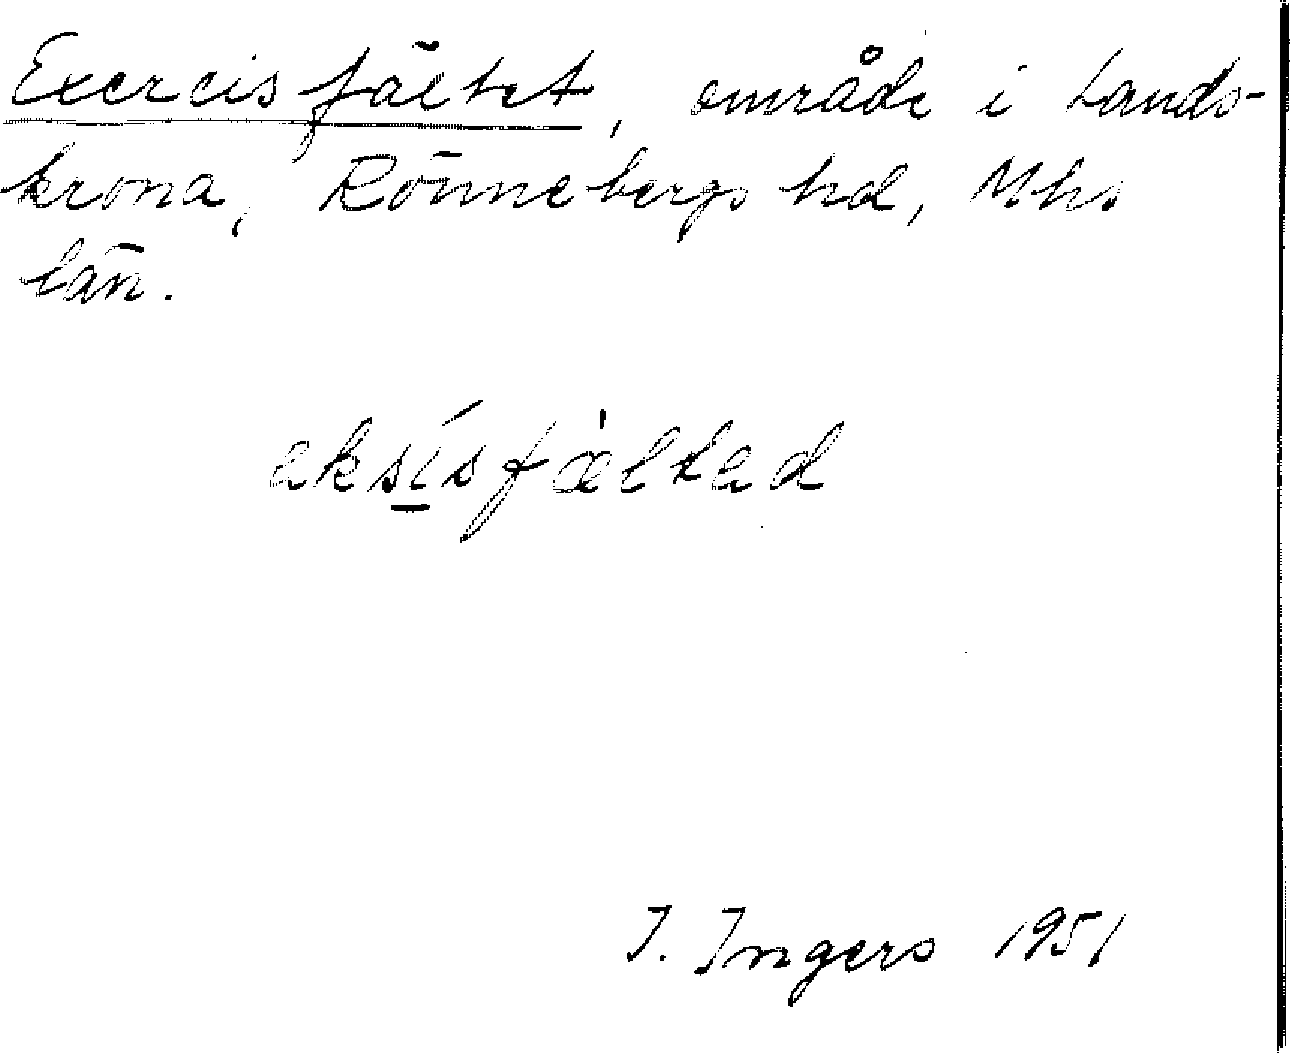 Exercisfältet, område i Lands-
krona, Rönnebergs hd, Mhs
län.
eksísfæ̀ltad
I. Ingers 1951